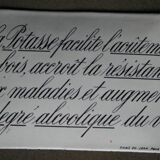 la Potasse facilite l'aoûtement
bois, accroit la résistan
x maladies et augmen
degré alcoolique du v